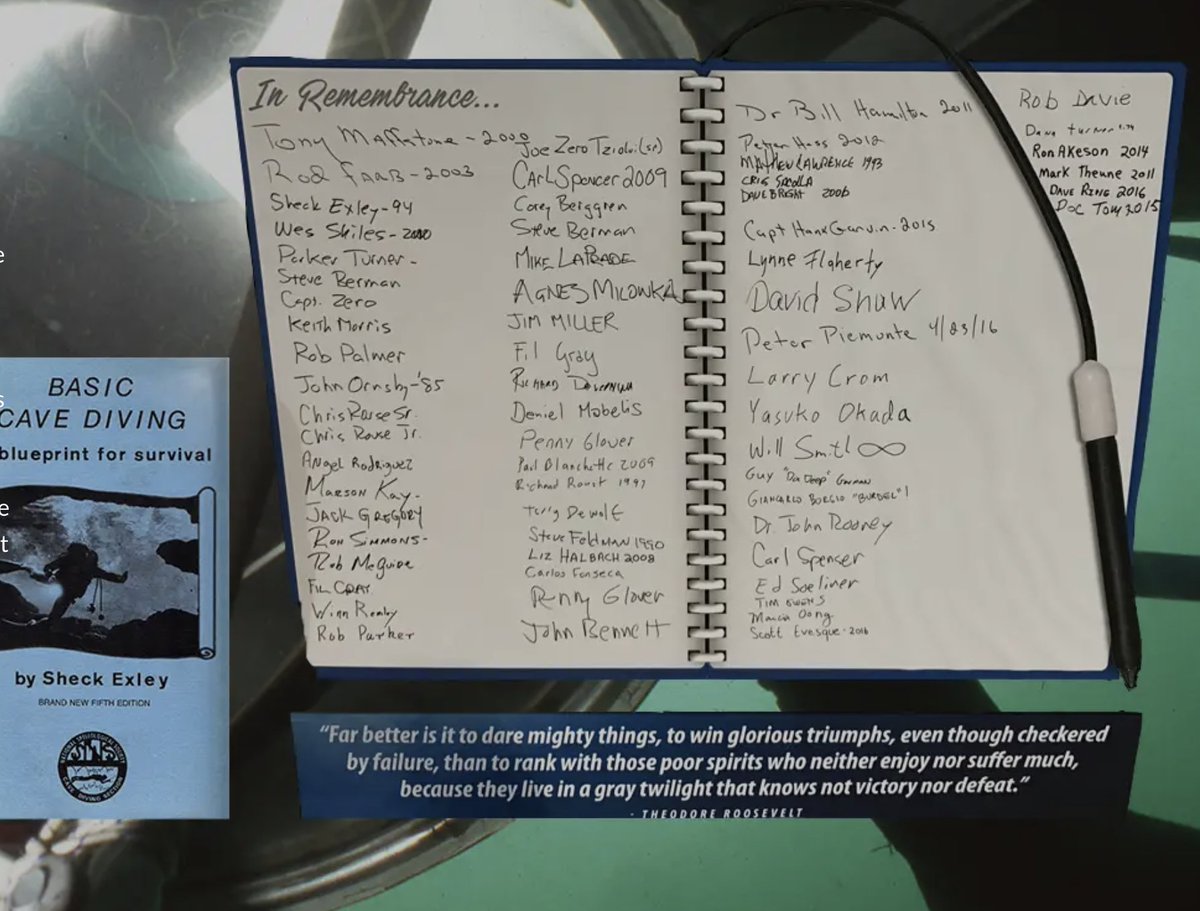 In Remembrance...
Tony Maffatone - 2000
Rod Farb - 2003
Sheck Exley - 94
Wes Skiles - 2010
Parker Turner -
Steve Berman
Capt. Zero
Keith Morris
Rob Palmer
John Ornsby - '85
Chris Rouse Sr.
Chris Rouse Jr.
Angel Rodriguez
Marson Kay -
JACK GREGORY
RON SIMMONS -
Rob McGuire
FIL GRAY
Winn Remley
Rob Parker
Joe Zero Tziolvi (sr)
CARL Spencer 2009
Corey Berggren
Steve Berman
MIKE LAPRADE
AGNES MILOWKA
JIM MILLER
Fil Gray
RICHARD
Deniel Mobelis
Penny Glover
Paul Blanchette 2009
Richard Roost 1997
Terry DeWolf
Steve FELDMAN 1990
LIZ HALBACH 2008
Carlos Fonseca
Penny Glover
John BENNETT
Dr Bill Hamilton 2011
Peter Hess 2012
MATTHEW LAWRENCE 1993
CRIS
DAVE BRIGHT 2006
Capt Hank Garvin - 2015
Lynne Flaherty
David Shaw
Peter Piemonte 4/23/16
Larry Crom
Yasuko Okada
Will Smith ∞
Guy "Da Deep" Garman
GIANCARLO BORGIO "BURDEL"!
Dr. John Rooney
Carl Spencer
Ed Soeliner
TIM OWENS
Marcia Oong
Scott Evesque - 2016
Rob Davie
Dave Turner
Ron AKeson 2014
Mark Theune 2011
DAVE RING 2016
DOC TOM 2015
BASIC
CAVE DIVING
blueprint for survival
by Sheck Exley
BRAND NEW FIFTH EDITION
NATIONAL SPELEOLOGICAL SOCIETY
CAVE DIVING SECTION
"Far better is it to dare mighty things, to win glorious triumphs, even though checkered
by failure, than to rank with those poor spirits who neither enjoy nor suffer much,
because they live in a gray twilight that knows not victory nor defeat."
- THEODORE ROOSEVELT